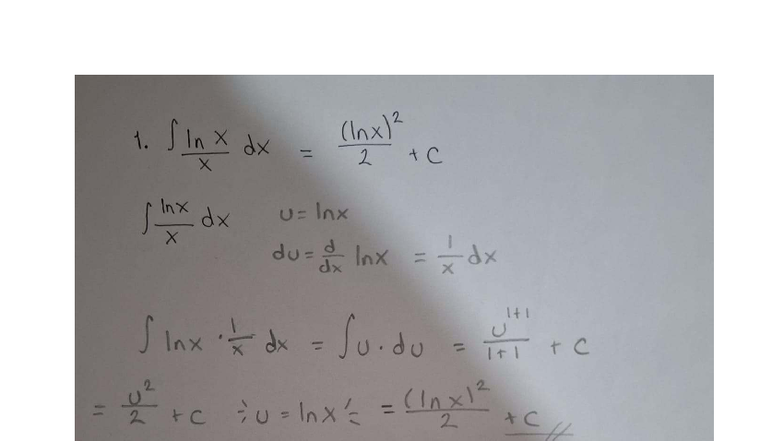 1. ∫ ln x / x dx = (ln x)² / 2 + C
∫ lnx / x dx u = lnx
du = d/dx lnx = 1/x dx
∫ lnx · 1/x dx = ∫ u · du = u^(1+1) / 1+1 + C
= u² / 2 + C u = lnx = (lnx)² / 2 + C